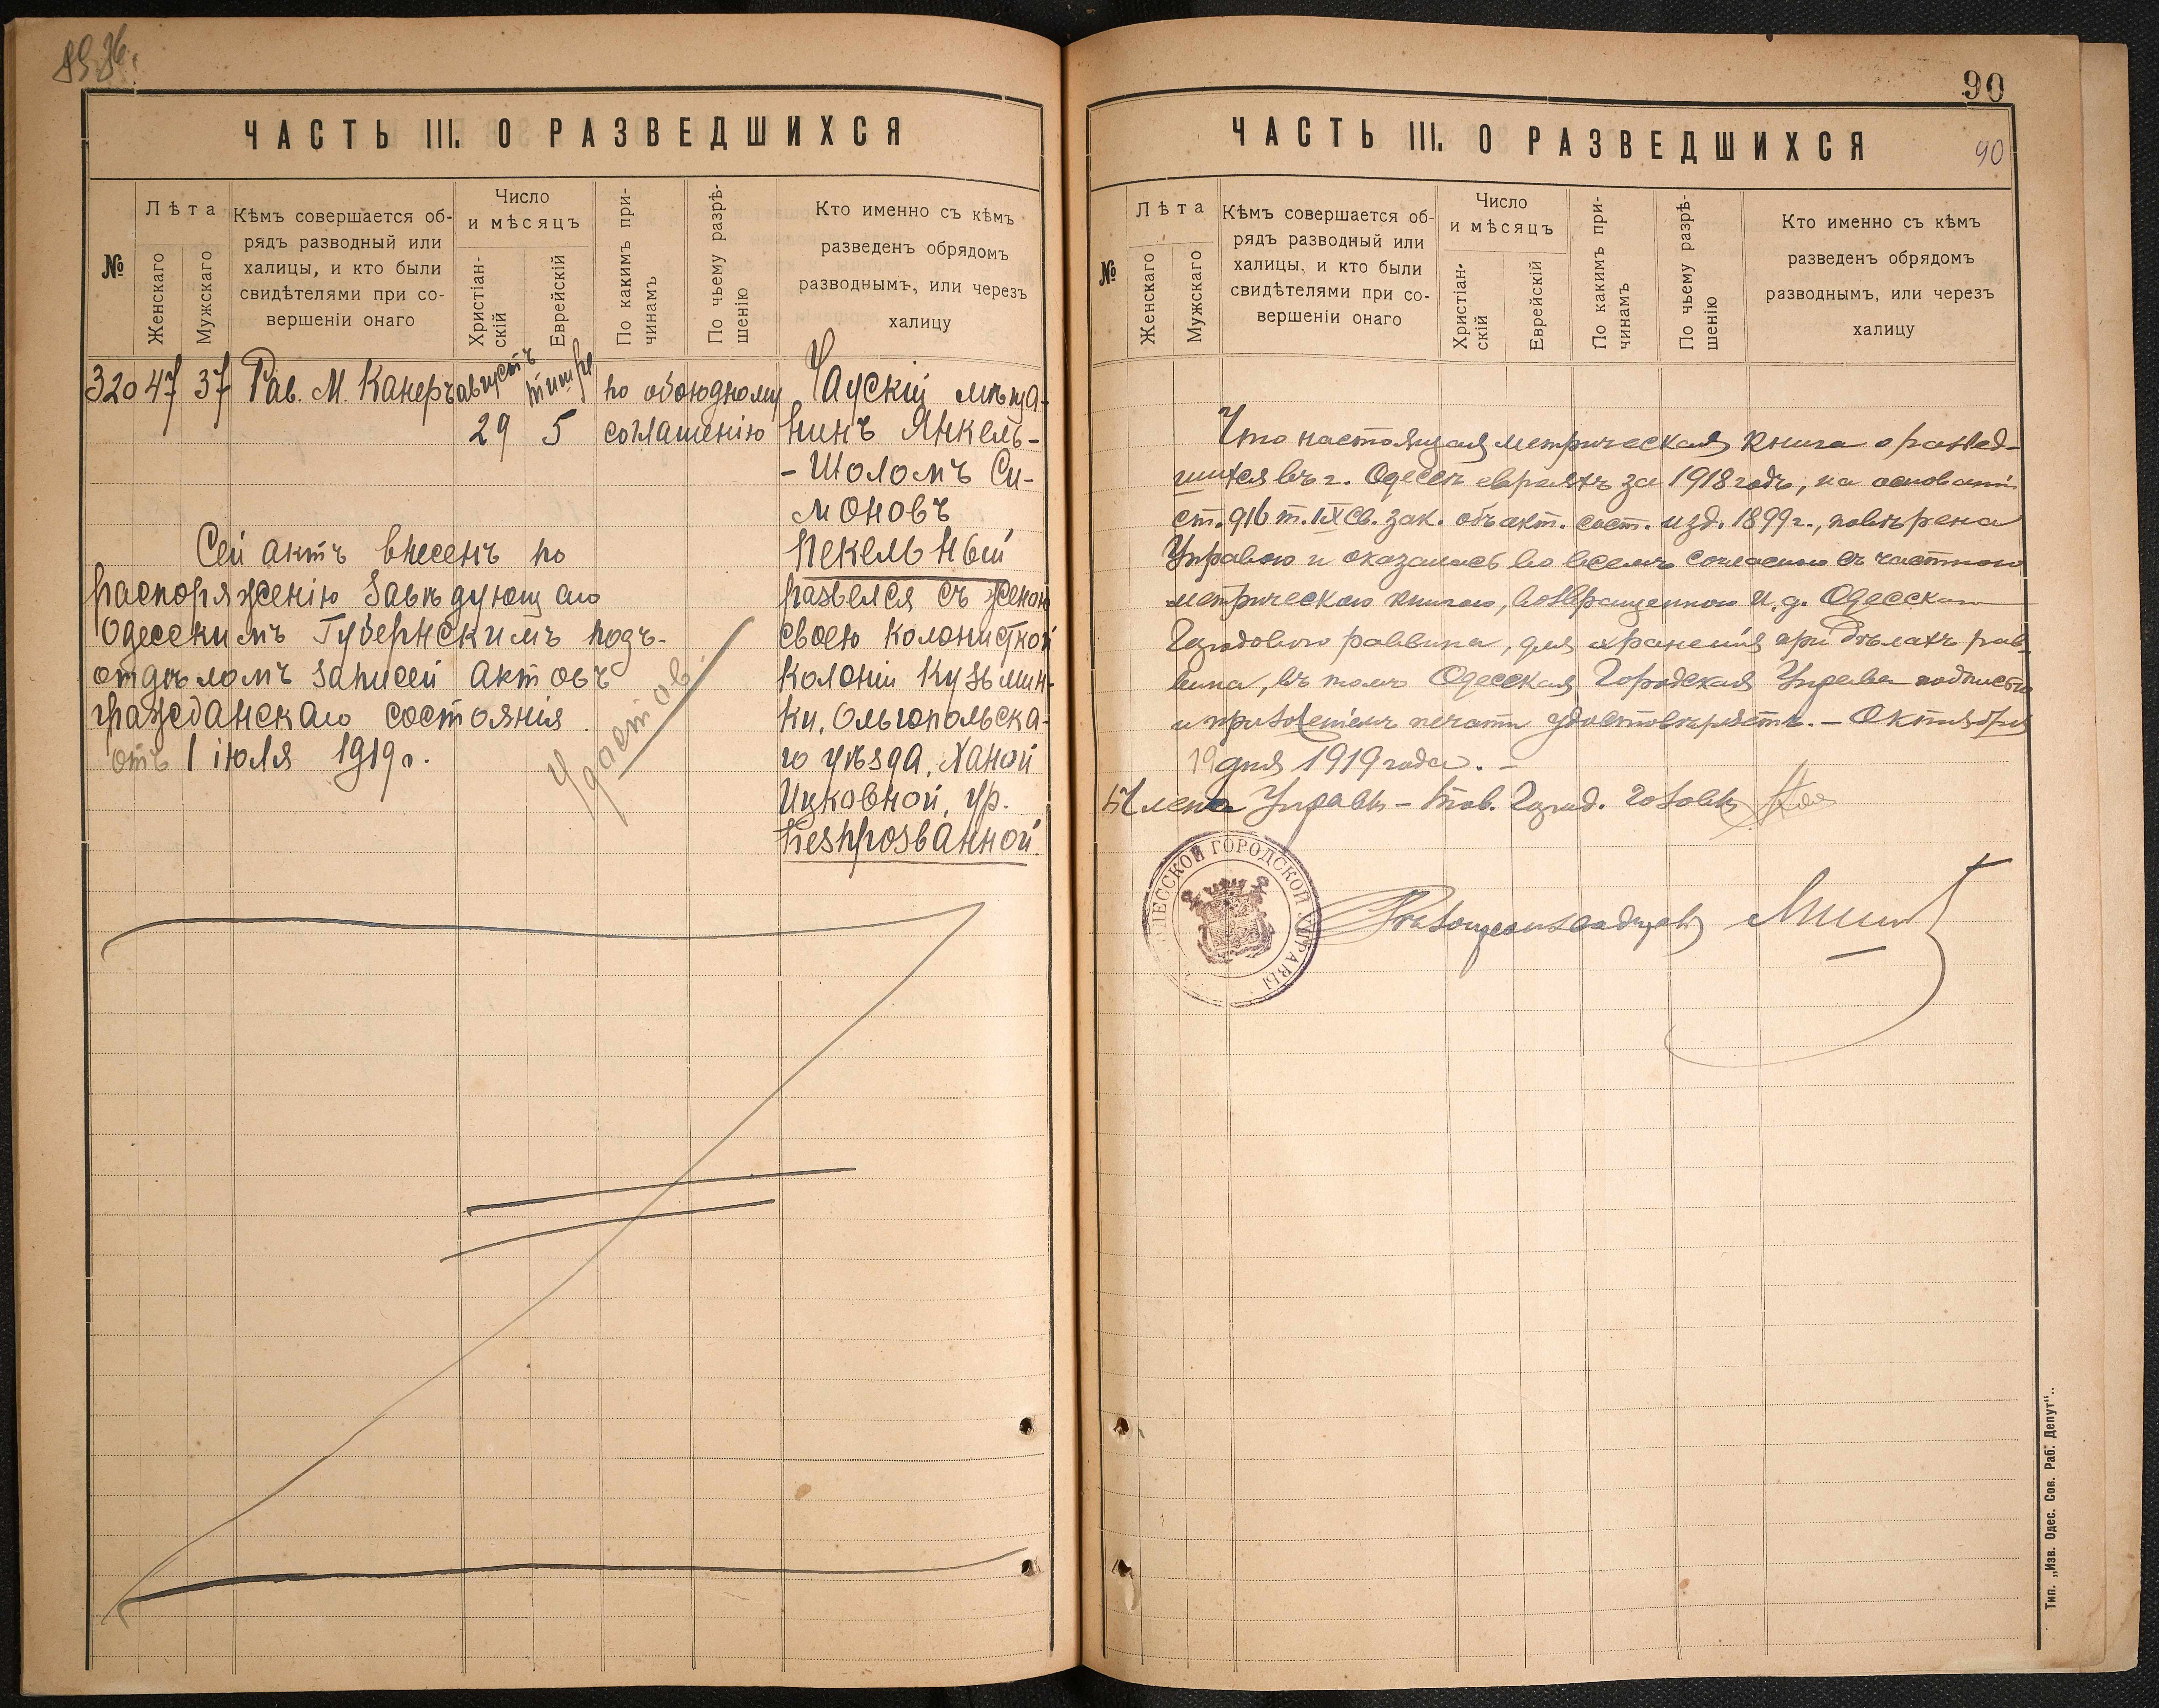 ЧАСТЬ III. О РАЗВЕДШИХСЯ
№
Лѣта
Женскаго
Мужскаго
Кѣмъ совершается об-
рядъ разводный или
халицы, и кто были
свидѣтелями при со-
вершеніи онаго
Число
и мѣсяцъ
Христіан-
скій
Еврейскій
По какимъ при-
чинамъ
По чьему разрѣ-
шенію
Кто именно съ кѣмъ
разведенъ обрядомъ
разводнымъ, или черезъ
халицу
320 47 37 Рав. М. Канеръ августъ тишре по обоюдному
29 5 соглашенію
Чаускій мѣща-
нинъ Янкель-
-Шоломъ Си-
моновъ
Пекельный
развелся съ женою
своею колонисткой
колоніи Кузьмин-
ки, Ольгопольска-
го уѣзда, Ханой
Ицковной, ур.
Безпрозванной.
Сей актъ внесенъ по
распоряженію Завѣдующаго
Одесскимъ Губернскимъ подъ-
отдѣломъ записей актовъ
гражданскаго состоянія
отъ 1 іюля 1919 г.
Удостов.
90
ЧАСТЬ III. О РАЗВЕДШИХСЯ
90
№
Лѣта
Женскаго
Мужскаго
Кѣмъ совершается об-
рядъ разводный или
халицы, и кто были
свидѣтелями при со-
вершеніи онаго
Число
и мѣсяцъ
Христіан-
скій
Еврейскій
По какимъ при-
чинамъ
По чьему разрѣ-
шенію
Кто именно съ кѣмъ
разведенъ обрядомъ
разводнымъ, или черезъ
халицу
Что настоящая метрическая книга о развед-
шихся въ г. Одессѣ евреяхъ за 1918 годъ, на основаніи
ст. 916 т. IX св. зак. объ акт. сост. изд. 1899 г., повѣрена
Управою и оказалась во всемъ согласною съ частною
метрическою книгою, возвращенною И. д. Одесскаго
Городового раввина, для храненія при дѣлахъ рав-
вина, въ томъ Одесская Городская Управа подписью
и приложеніемъ печати удостовѣряетъ. – Октября
19 дня 1919 года. –
Членъ Управы – Тов. Город. Головы
ОДЕССКОЙ ГОРОДСКОЙ УПРАВЫ
Дѣлопроизводитель
Тип. „Изв. Одес. Сов. Раб. Депут“..